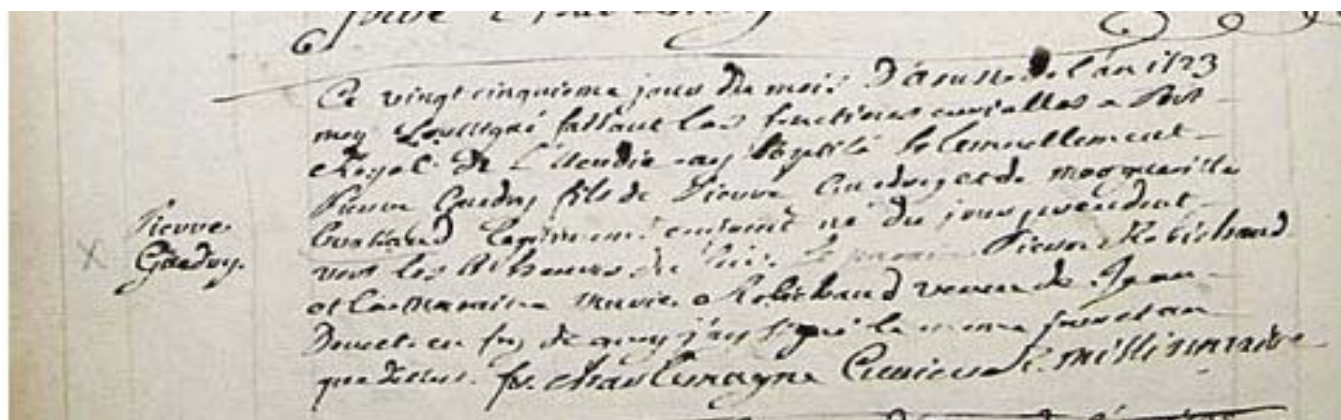 Ce vingt cinquieme jour du mois D'aoust de l'an 1723
moy Soussigné faisant les fonctions curialles a Port
Royal de L'accadie ay baptisé Solemnellement
Pierre Gaudry fils de Pierre Gaudry et de Marguerille
legitimement né du jour precedent
vers les heures du Soir Le parain Pierre Robichaud
et La Maraine Marie Robichaud veuve de Jean
en foy de quoy j'ay Signé le meme jour et an
que dessus. fr. charlemagne Cuvier R. missionnaire
Pierre
Gaudry